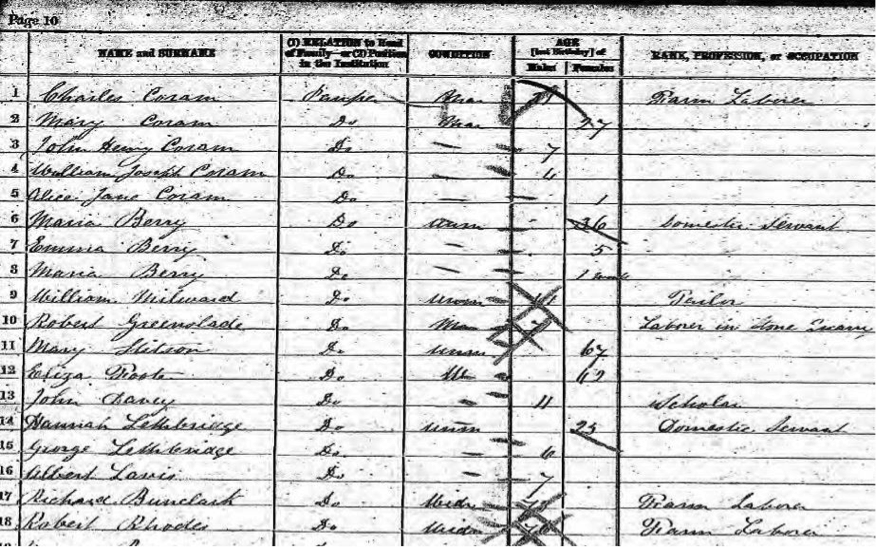 Page 10
NAME and SURNAME (1) RELATION to Head of Family—or (2) Position in the Institution CONDITION AGE [last Birthday] of Males Females RANK, PROFESSION, or OCCUPATION
1 Charles Coram Pauper Mar Farm Laborer
2 Mary Coram Do Mar 27
3 John Henry Coram Do — 7
4 William Joseph Coram Do — 4
5 Alice Jane Coram Do — 1
6 Maria Berry Do Unm 36 Domestic Servant
7 Emma Berry Do — 5
8 Maria Berry Do — 1
9 William Milward Do Unm Tailor
10 Robert Greenslade Do Mar Laborer in Stone Quarry
11 Mary Stitson Do Unm 67
12 Eliza Do W
13 John Davey Do — 11 Scholar
14 Hannah Lethbridge Do Unm 25 Domestic Servant
15 George Lethbridge Do — 6
16 Albert Lavis Do — 7
17 Richard Bunclark Do Widr Farm Laborer
18 Robert Rhodes Do Widr Farm Laborer